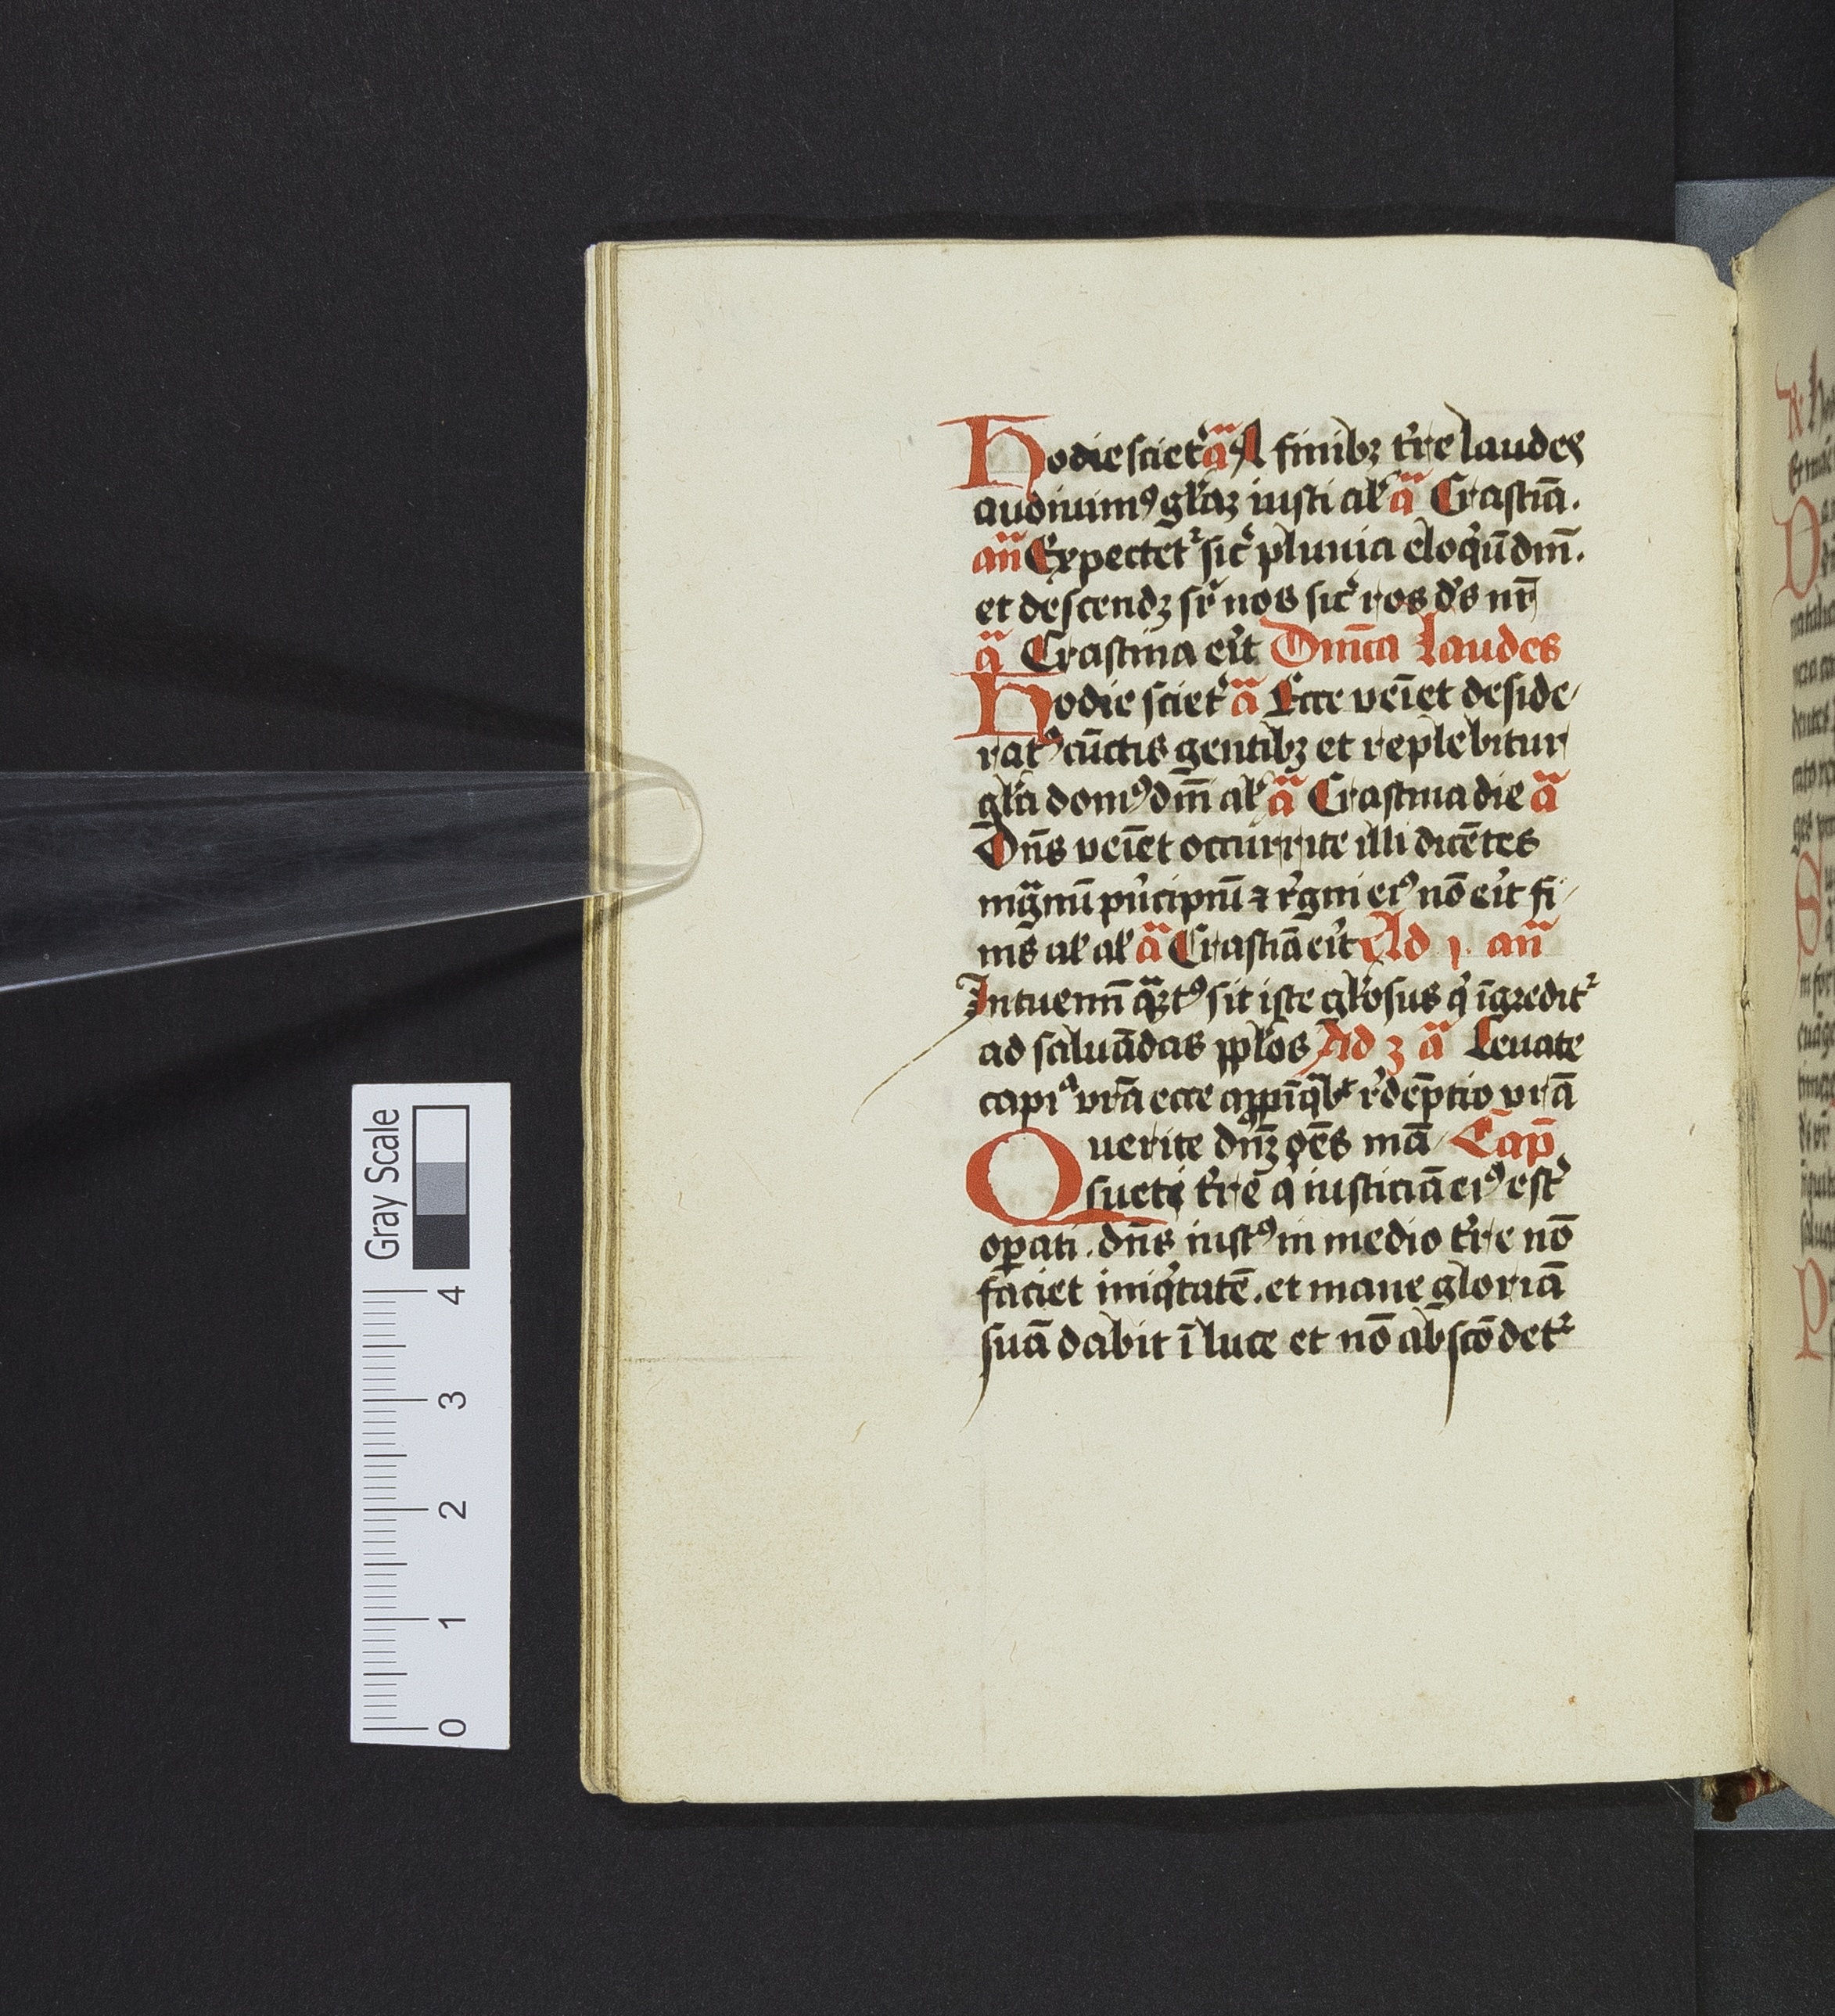 Hodie sciet᷑ a᷑ A finibꝫ t᷑re laudes
audiuimꝰ gl᷑aꝫ iusti al᷑ a᷑ Crastiā.
an̄ Expectet᷑ sic᷑ pluuia eloq᷑ū dn̄i.
et descendꝫ sr᷑ nos sic᷑ ros d᷑s nr̄
a᷑ Crastina eit᷑ Dm̄ca Laudes
Hodie sciet᷑ a᷑ Ecce veīet deside
ratꝰ cūctis gentibꝫ et replebitur
gl᷑a domꝰ dn̄i al᷑ a᷑ Crastina die a᷑
Dn̄s veīet occurrite illi dicētes
mgnū pn᷑cipiū ⁊ r᷑gni eiꝰ nō eit᷑ fi
nis al᷑ al᷑ a᷑ Crastiā eit᷑ Ad ı. an̄
Intuem̄ qꝫtꝰ sit iste gl᷑osus q᷑ īgredit᷑
ad saluādas ppl᷑os Ad ꝫ a᷑ Leuate
capiᵃ vr̄a ecce appīqb᷑t r᷑dēptio vr̄a
Querite dn̄ꝫ oēs mā Cap̄
sueti t᷑re q᷑ iusticiā eiꝰ est᷑
oꝑati. dn̄s iustꝰ in medio t᷑re nō
faciet iniq᷑tatē. et mane gloriā
suā dabit ī luce et nō abscōdet᷑
Gray Scale
4
3
2
1
0